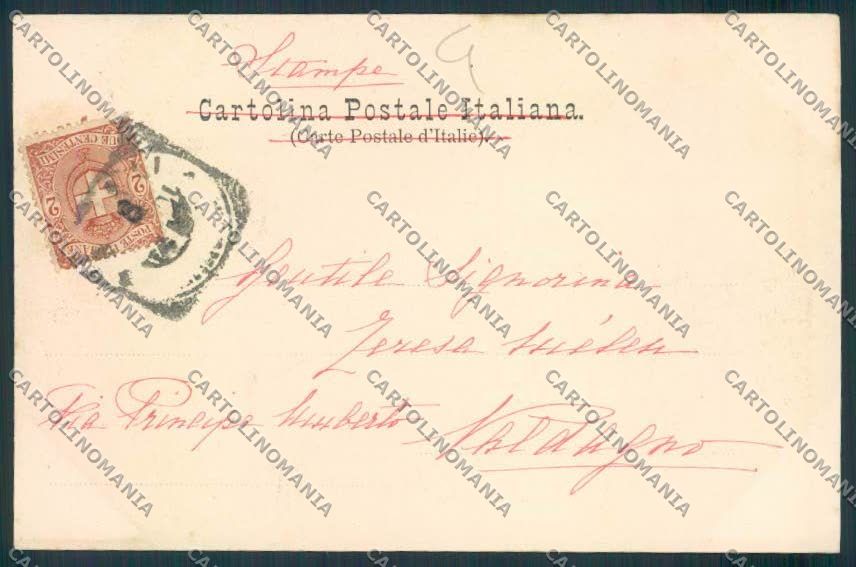 Stampe
Cartolina Postale Italiana.
(Carte Postale d'Italie).
DUE CENTESIMI
2 2
POSTE
Gentile Signorina
Teresa
Via Principe Umberto
Valdagno
CARTOLINOMANIA